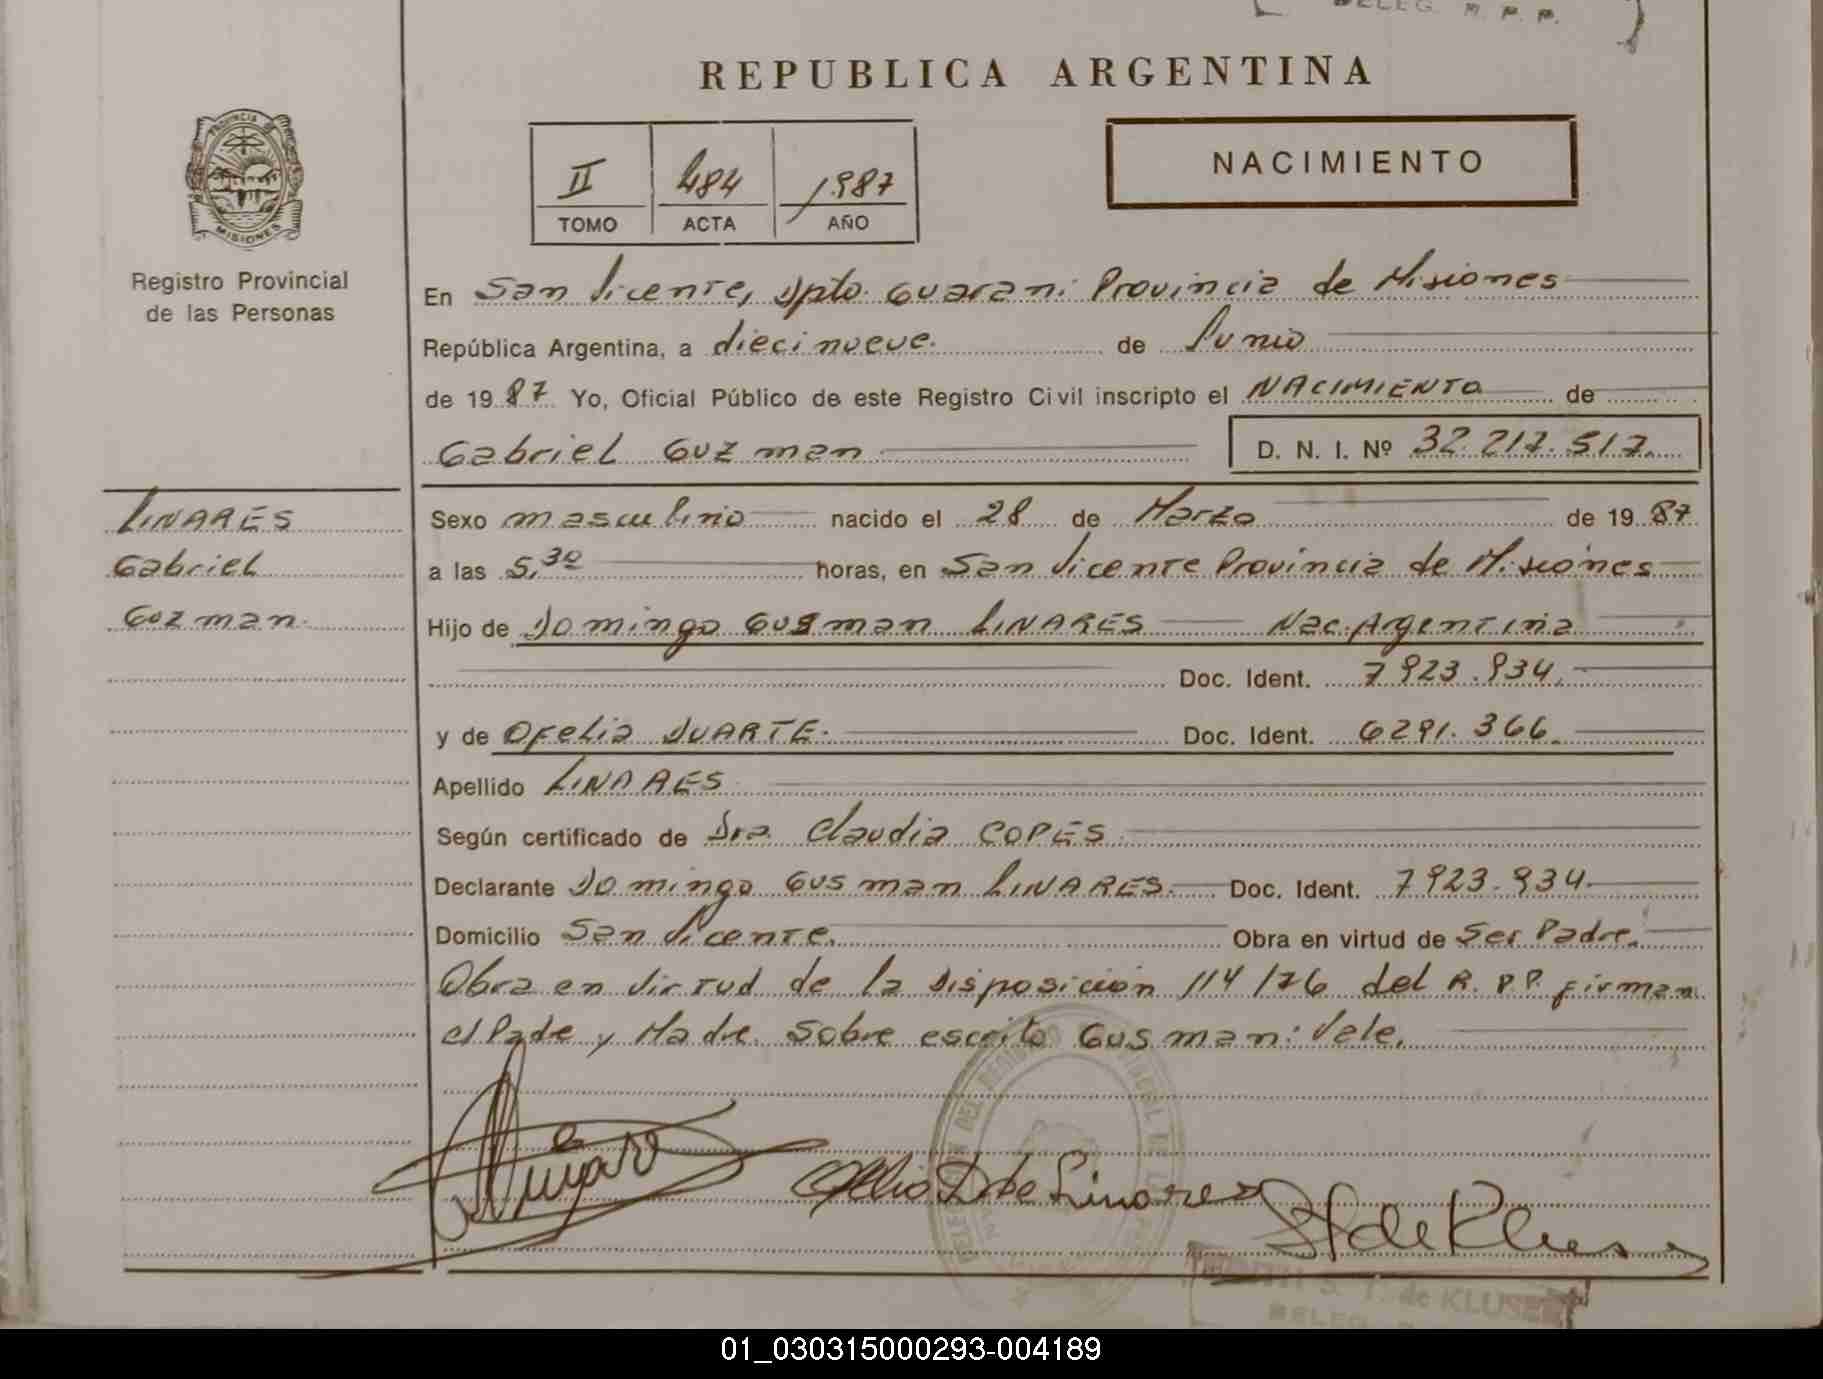 DELEG. R. P. P.
REPUBLICA ARGENTINA
PROVINCIA DE
MISIONES
II 484 1987
TOMO ACTA AÑO
NACIMIENTO
Registro Provincial
de las Personas
En San Vicente, Dpto. Guarani Provincia de Misiones
República Argentina, a diecinueve. de Junio
de 1987 Yo, Oficial Público de este Registro Civil inscripto el NACIMIENTO de
Gabriel Guzman D. N. I. Nº 32.217.517.
LINARES
Gabriel
Guzman.
Sexo masculino nacido el 28 de Marzo de 1987
a las 5,30 horas, en San Vicente Provincia de Misiones
Hijo de Domingo Gusman LINARES Nac. Argentina
Doc. Ident. 7923.934.
y de Ofelia DUARTE. Doc. Ident. 6291.366.
Apellido LINARES
Según certificado de Dra. Claudia COPES.
Declarante Domingo Gusman LINARES. Doc. Ident. 7923.934.
Domicilio San Vicente. Obra en virtud de Ser Padre.
Obra en virtud de la Disposición 114/76 del R. P.P. firman
el Pade y Madre. Sobre escrito Gusman: Vale.
S. T. de KLUSE
DELEG.
01_030315000293-004189